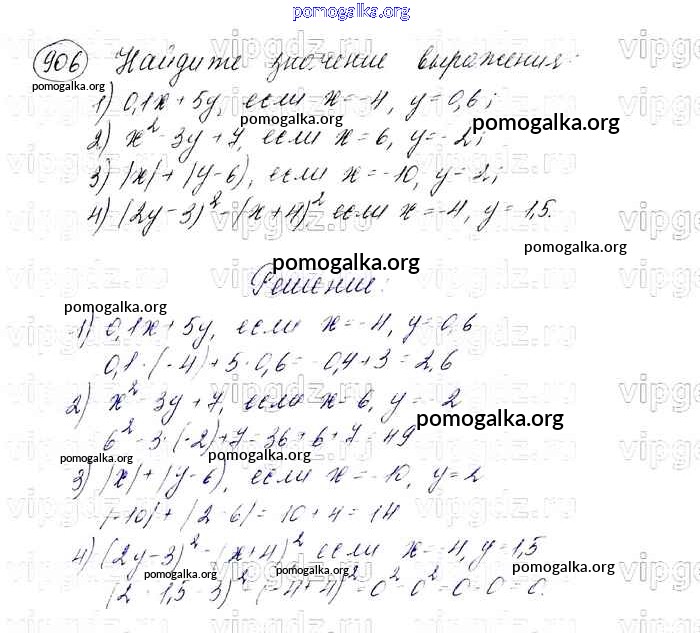 pomogalka.org
906 Найдите значение выражения:
pomogalka.org
1) 0,1x + 5y, если x = -4, y = 0,6;
pomogalka.org pomogalka.org
2) x² - 3y + 7, если x = 6, y = -2;
3) |x| + |y-6|, если x = -10, y = 2;
4) (2y-3)² - (x+4)², если x = -4, y = 1,5.
pomogalka.org
pomogalka.org
Решение:
pomogalka.org
1) 0,1x + 5y, если x = -4, y = 0,6
0,1 · (-4) + 5 · 0,6 = -0,4 + 3 = 2,6
2) x² - 3y + 7, если x = 6, y = -2
pomogalka.org
6² - 3 · (-2) + 7 = 36 + 6 + 7 = 49
pomogalka.org pomogalka.org
3) |x| + |y-6|, если x = -10, y = 2
|-10| + |2-6| = 10 + 4 = 14
4) (2y-3)² - (x+4)² если x = -4, y = 1,5
pomogalka.org pomogalka.org pomogalka.org
(2 · 1,5 - 3)² - (-4+4)² = 0² - 0² = 0 - 0 = 0.